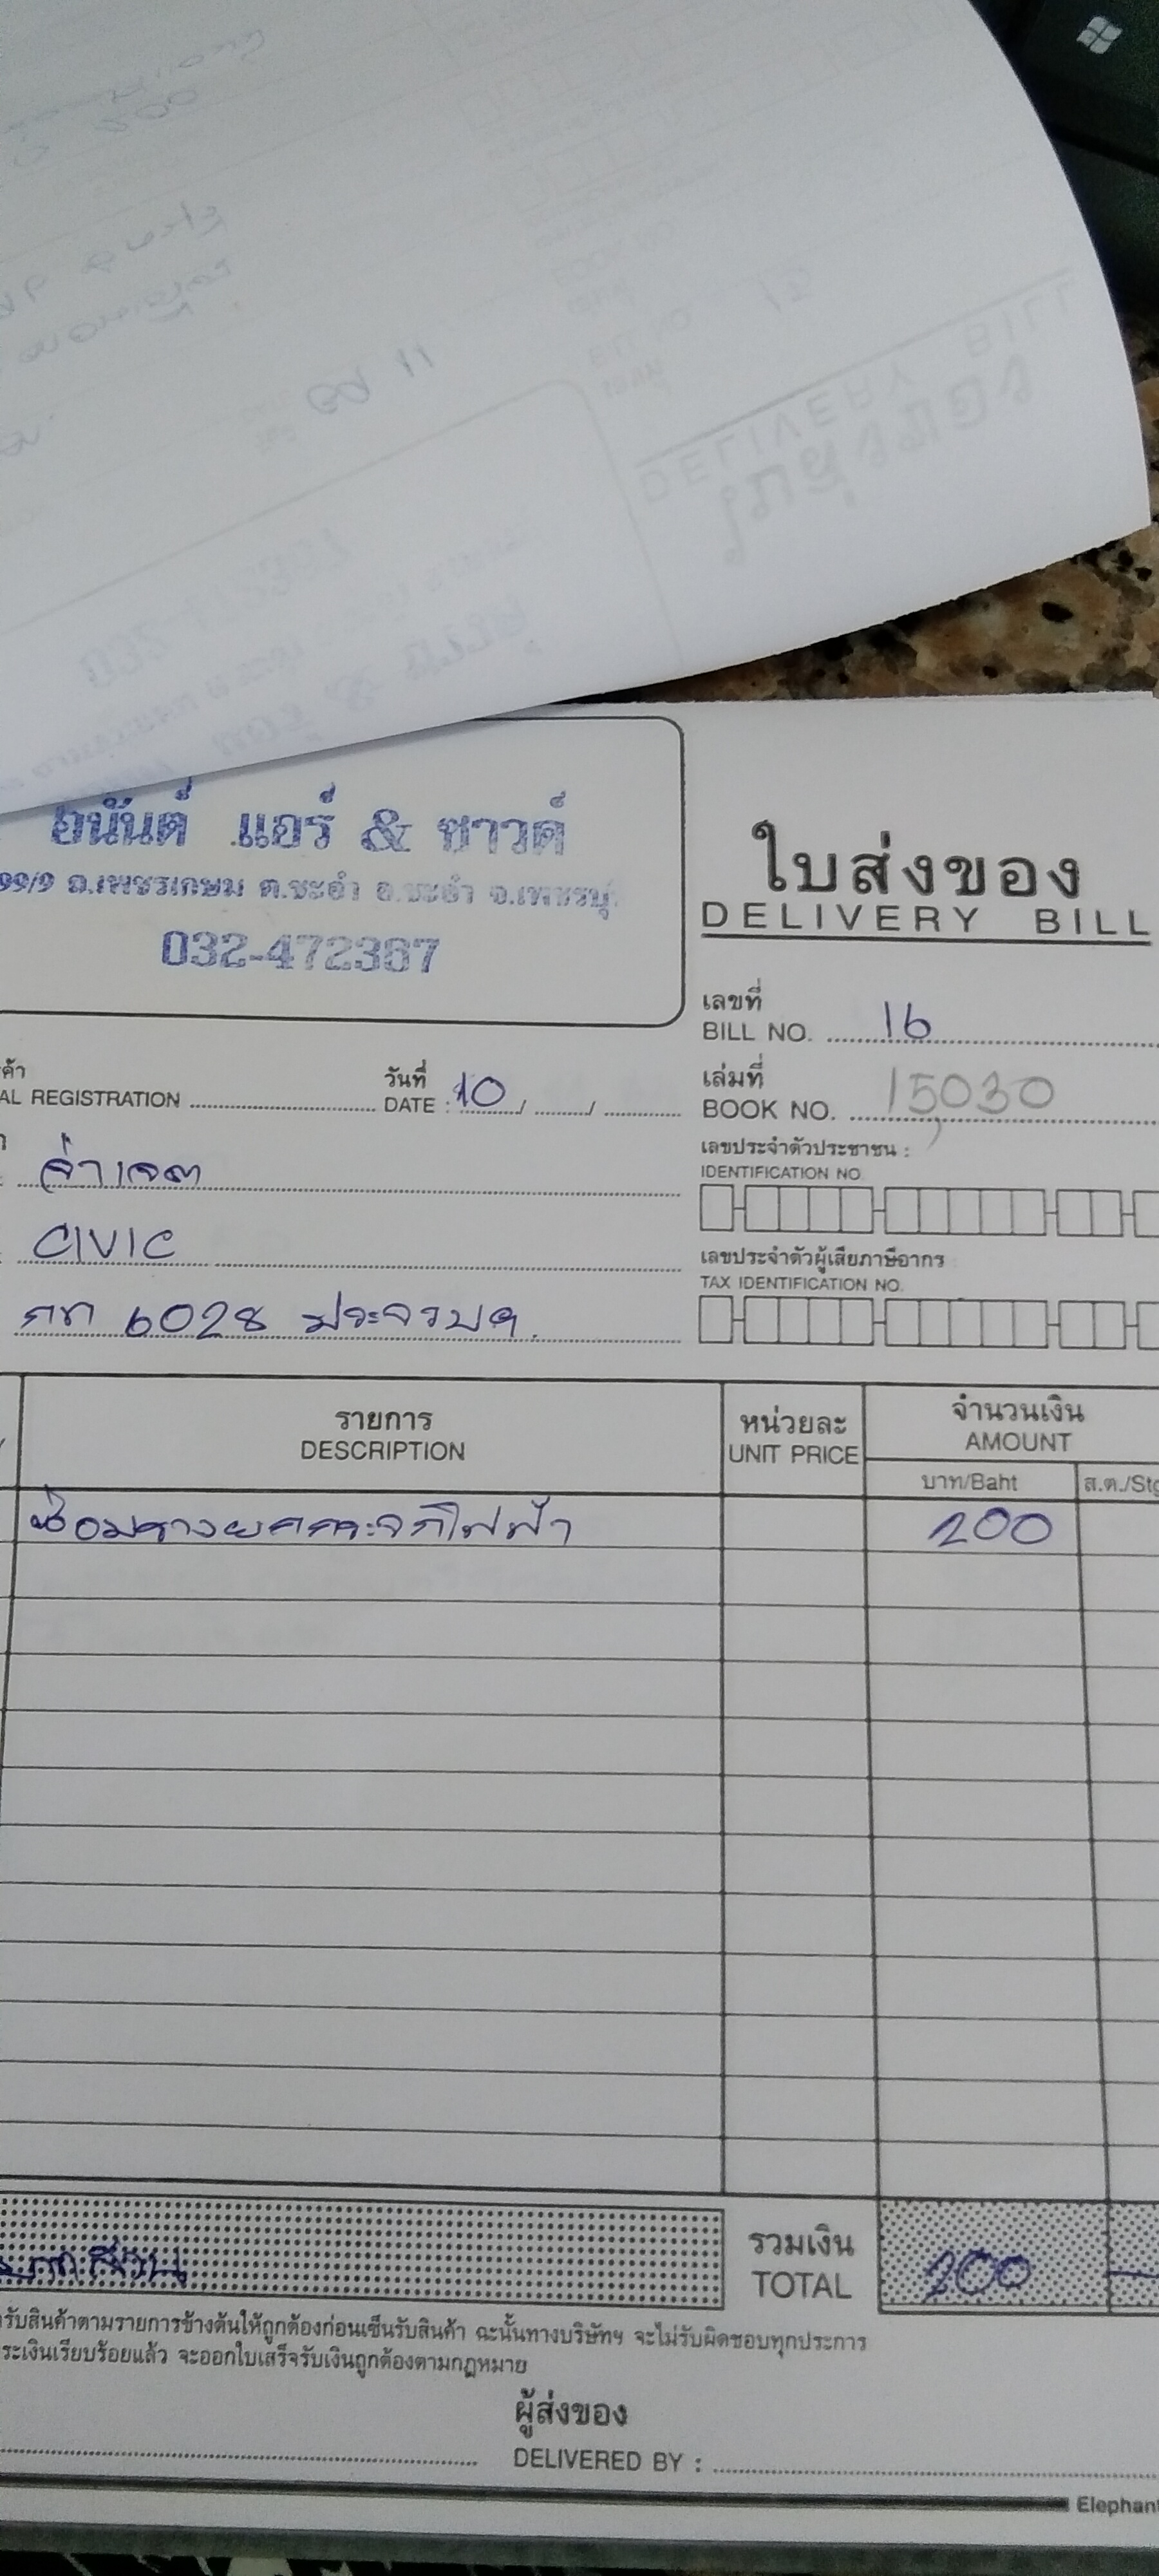 อนันต์ แอร์ & ซาวด์
99/9 ถ.เพชรเกษม ต.ชะอำ อ.ชะอำ จ.เพชรบุ
032-472367
ใบส่งของ
DELIVERY BILL
เลขที่
BILL NO. 16
เล่มที่
BOOK NO. 15,030
วันที่
AL REGISTRATION DATE : 10 / /
จ่าเจต
CIVIC
กท 6028 ประจวบฯ.
เลขประจำตัวประชาชน :
IDENTIFICATION NO.
เลขประจำตัวผู้เสียภาษีอากร
TAX IDENTIFICATION NO.
รายการ หน่วยละ จำนวนเงิน
DESCRIPTION UNIT PRICE AMOUNT
บาท/Baht ส.ต./Stg
ซ่อมรางยกกระจกไฟฟ้า 200
รวมเงิน
TOTAL 200 —
รับสินค้าตามรายการข้างต้นให้ถูกต้องก่อนเซ็นรับสินค้า ฉะนั้นทางบริษัทฯ จะไม่รับผิดชอบทุกประการ
ระเงินเรียบร้อยแล้ว จะออกใบเสร็จรับเงินถูกต้องตามกฎหมาย
ผู้ส่งของ
DELIVERED BY :
Elephant